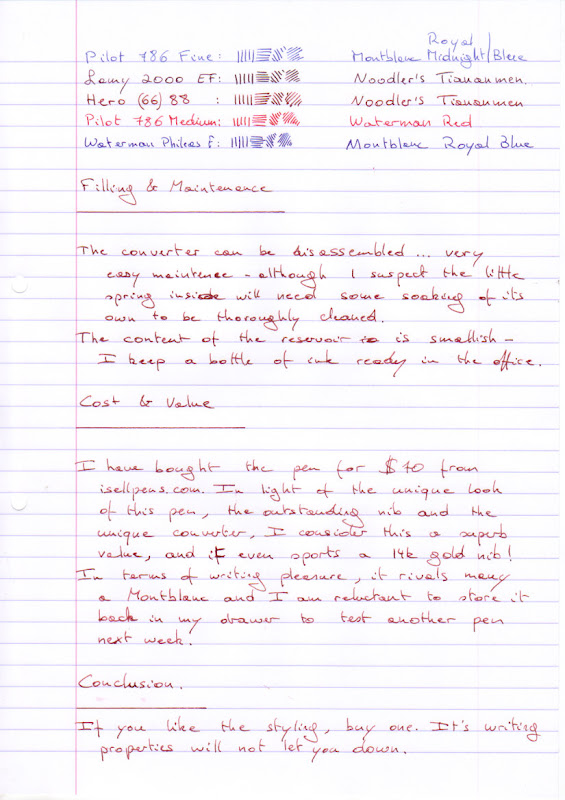 Royal
Pilot 78G Fine: Montblanc Midnight/Blue
Lamy 2000 EF: Noodler's Tiananmen.
Hero (66) 88 : Noodler's Tiananmen
Pilot 78G Medium: Waterman Red
Waterman Phileas F: Montblanc Royal Blue
Filling & Maintenance
The converter can be disassembled ... very
easy maintence - although I suspect the little
spring inside will need some soaking of its
own to be thoroughly cleaned.
The content of the reservoir is smallish -
I keep a bottle of ink ready in the office.
Cost & Value
I have bought the pen for $70 from
isellpens.com. In light of the unique look
of this pen, the outstanding nib and the
unique converter, I consider this a superb
value, and it even sports a 14k gold nib!
In terms of writing pleasure, it rivals many
a Montblanc and I am reluctant to store it
back in my drawer to test another pen
next week.
Conclusion.
If you like the styling, buy one. It's writing
properties will not let you down.